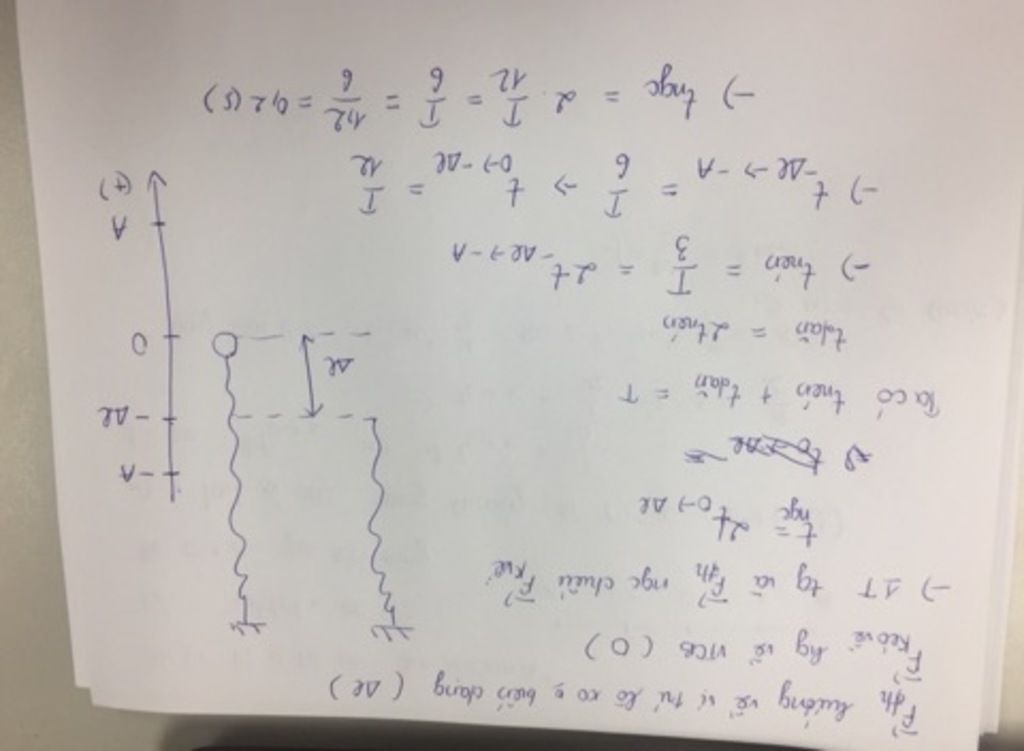 F⃗đh hướng về vị trí lò xo ko biến dạng (Δl)
F⃗kéo về hg về VTCB (O)
→ 1T tg và F⃗đh ngc chiều F⃗kvề
tngc = 2t0→Δl
Ta có tnén + tdãn = T
tdãn = 2tnén
→ tnén = T/3 = 2t-Δl→-A
→ t-Δl→-A = T/6 → t0→-Δl = T/12
→ tngc = 2.T/12 = T/6 = 1,2/6 = 0,2 (s)
-A
-Δl
Δl
O
A
(+)